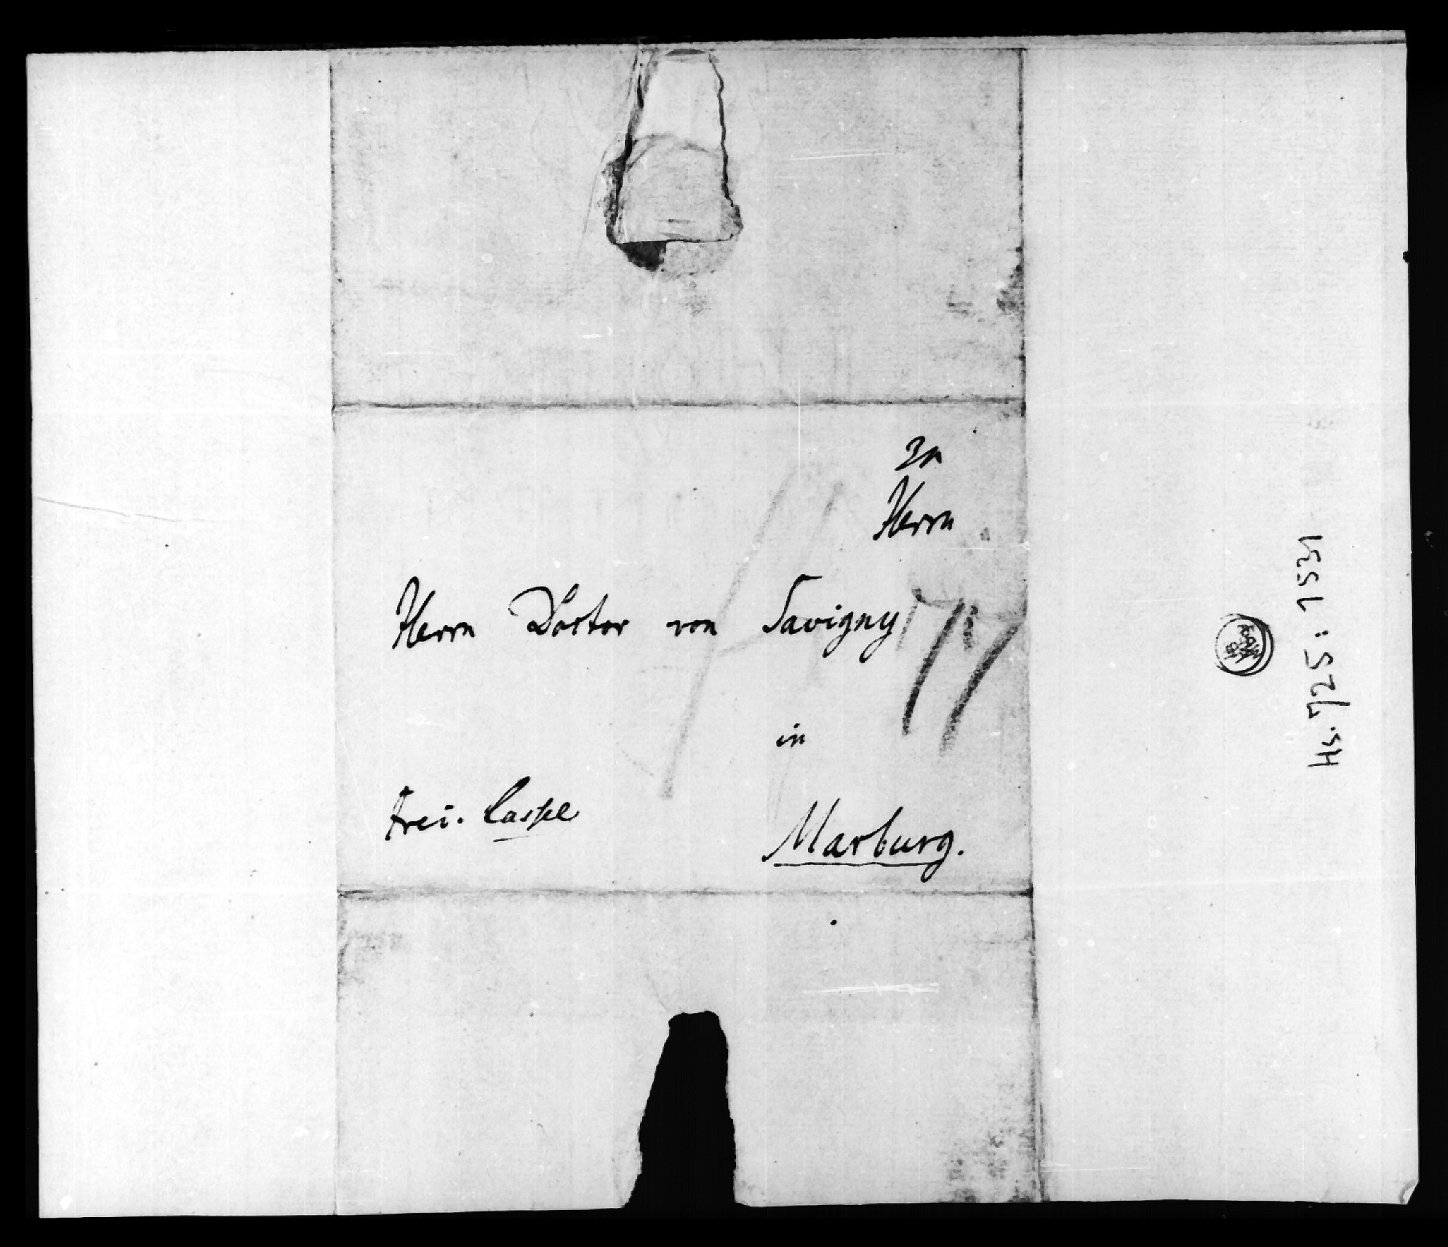 Herrn
Herrn Doctor von Savigny
in
frei. Cassel
Marburg.
Hs. 725: 1531